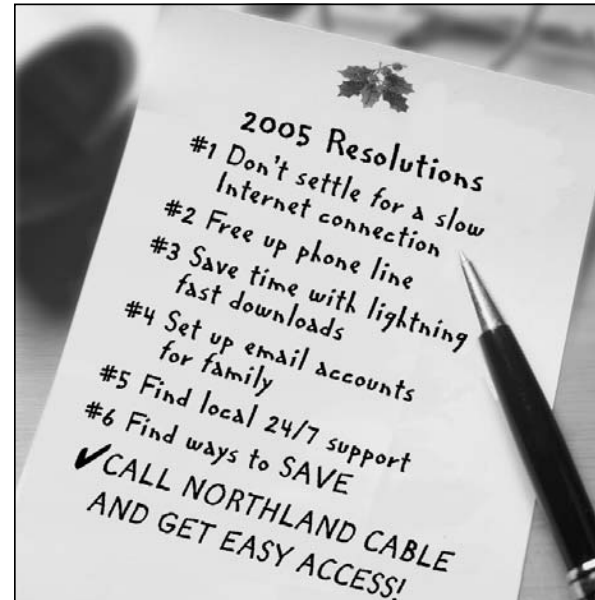 2005 Resolutions
#1 Don't settle for a slow
Internet connection
#2 Free up phone line
#3 Save time with lightning
fast downloads
#4 Set up email accounts
for family
#5 Find local 24/7 support
#6 Find ways to SAVE
✓CALL NORTHLAND CABLE
AND GET EASY ACCESS!